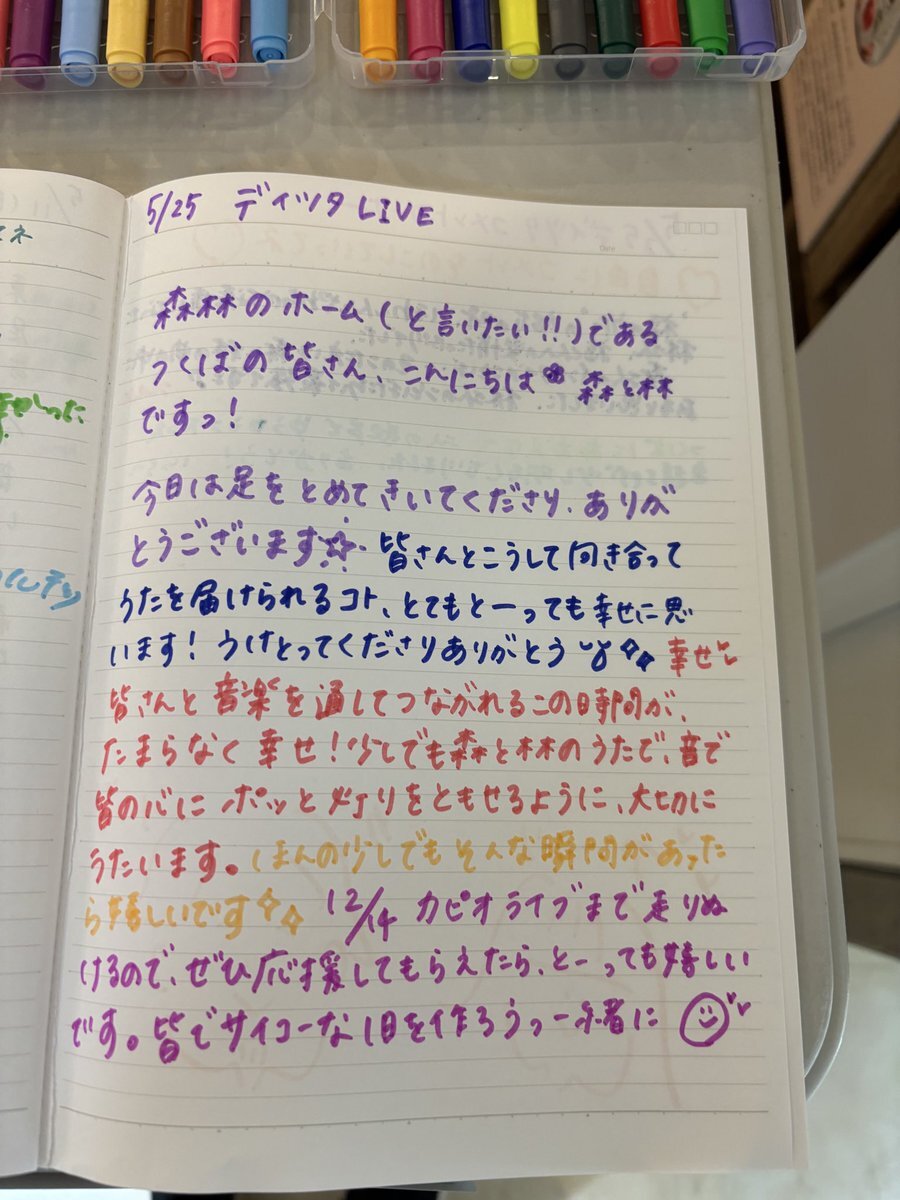 5/25 ディツタ LIVE
森林のホーム(と言いたい!!)である
つくばの皆さん、こんにちは 森と林
ですっ!
今日は足をとめてきいてくださり、ありが
とうございます☆ 皆さんとこうして向き合って
うたを届けられるコト、とてもとーっても幸せに思
います! うけとってくださりありがとう 幸せ
皆さんと音楽を通してつながれるこの時間が、
たまらなく幸せ!少しでも森と林のうたで、音で
皆の心にポッと灯りをともせるように、大切に
うたいます。ほんの少しでもそんな瞬間があった
ら嬉しいです 12/14 カピオライブまで走りぬ
けるので、ぜひ応援してもらえたら、とーっても嬉しい
です。皆でサイコーな1日を作ろうっ一緒に